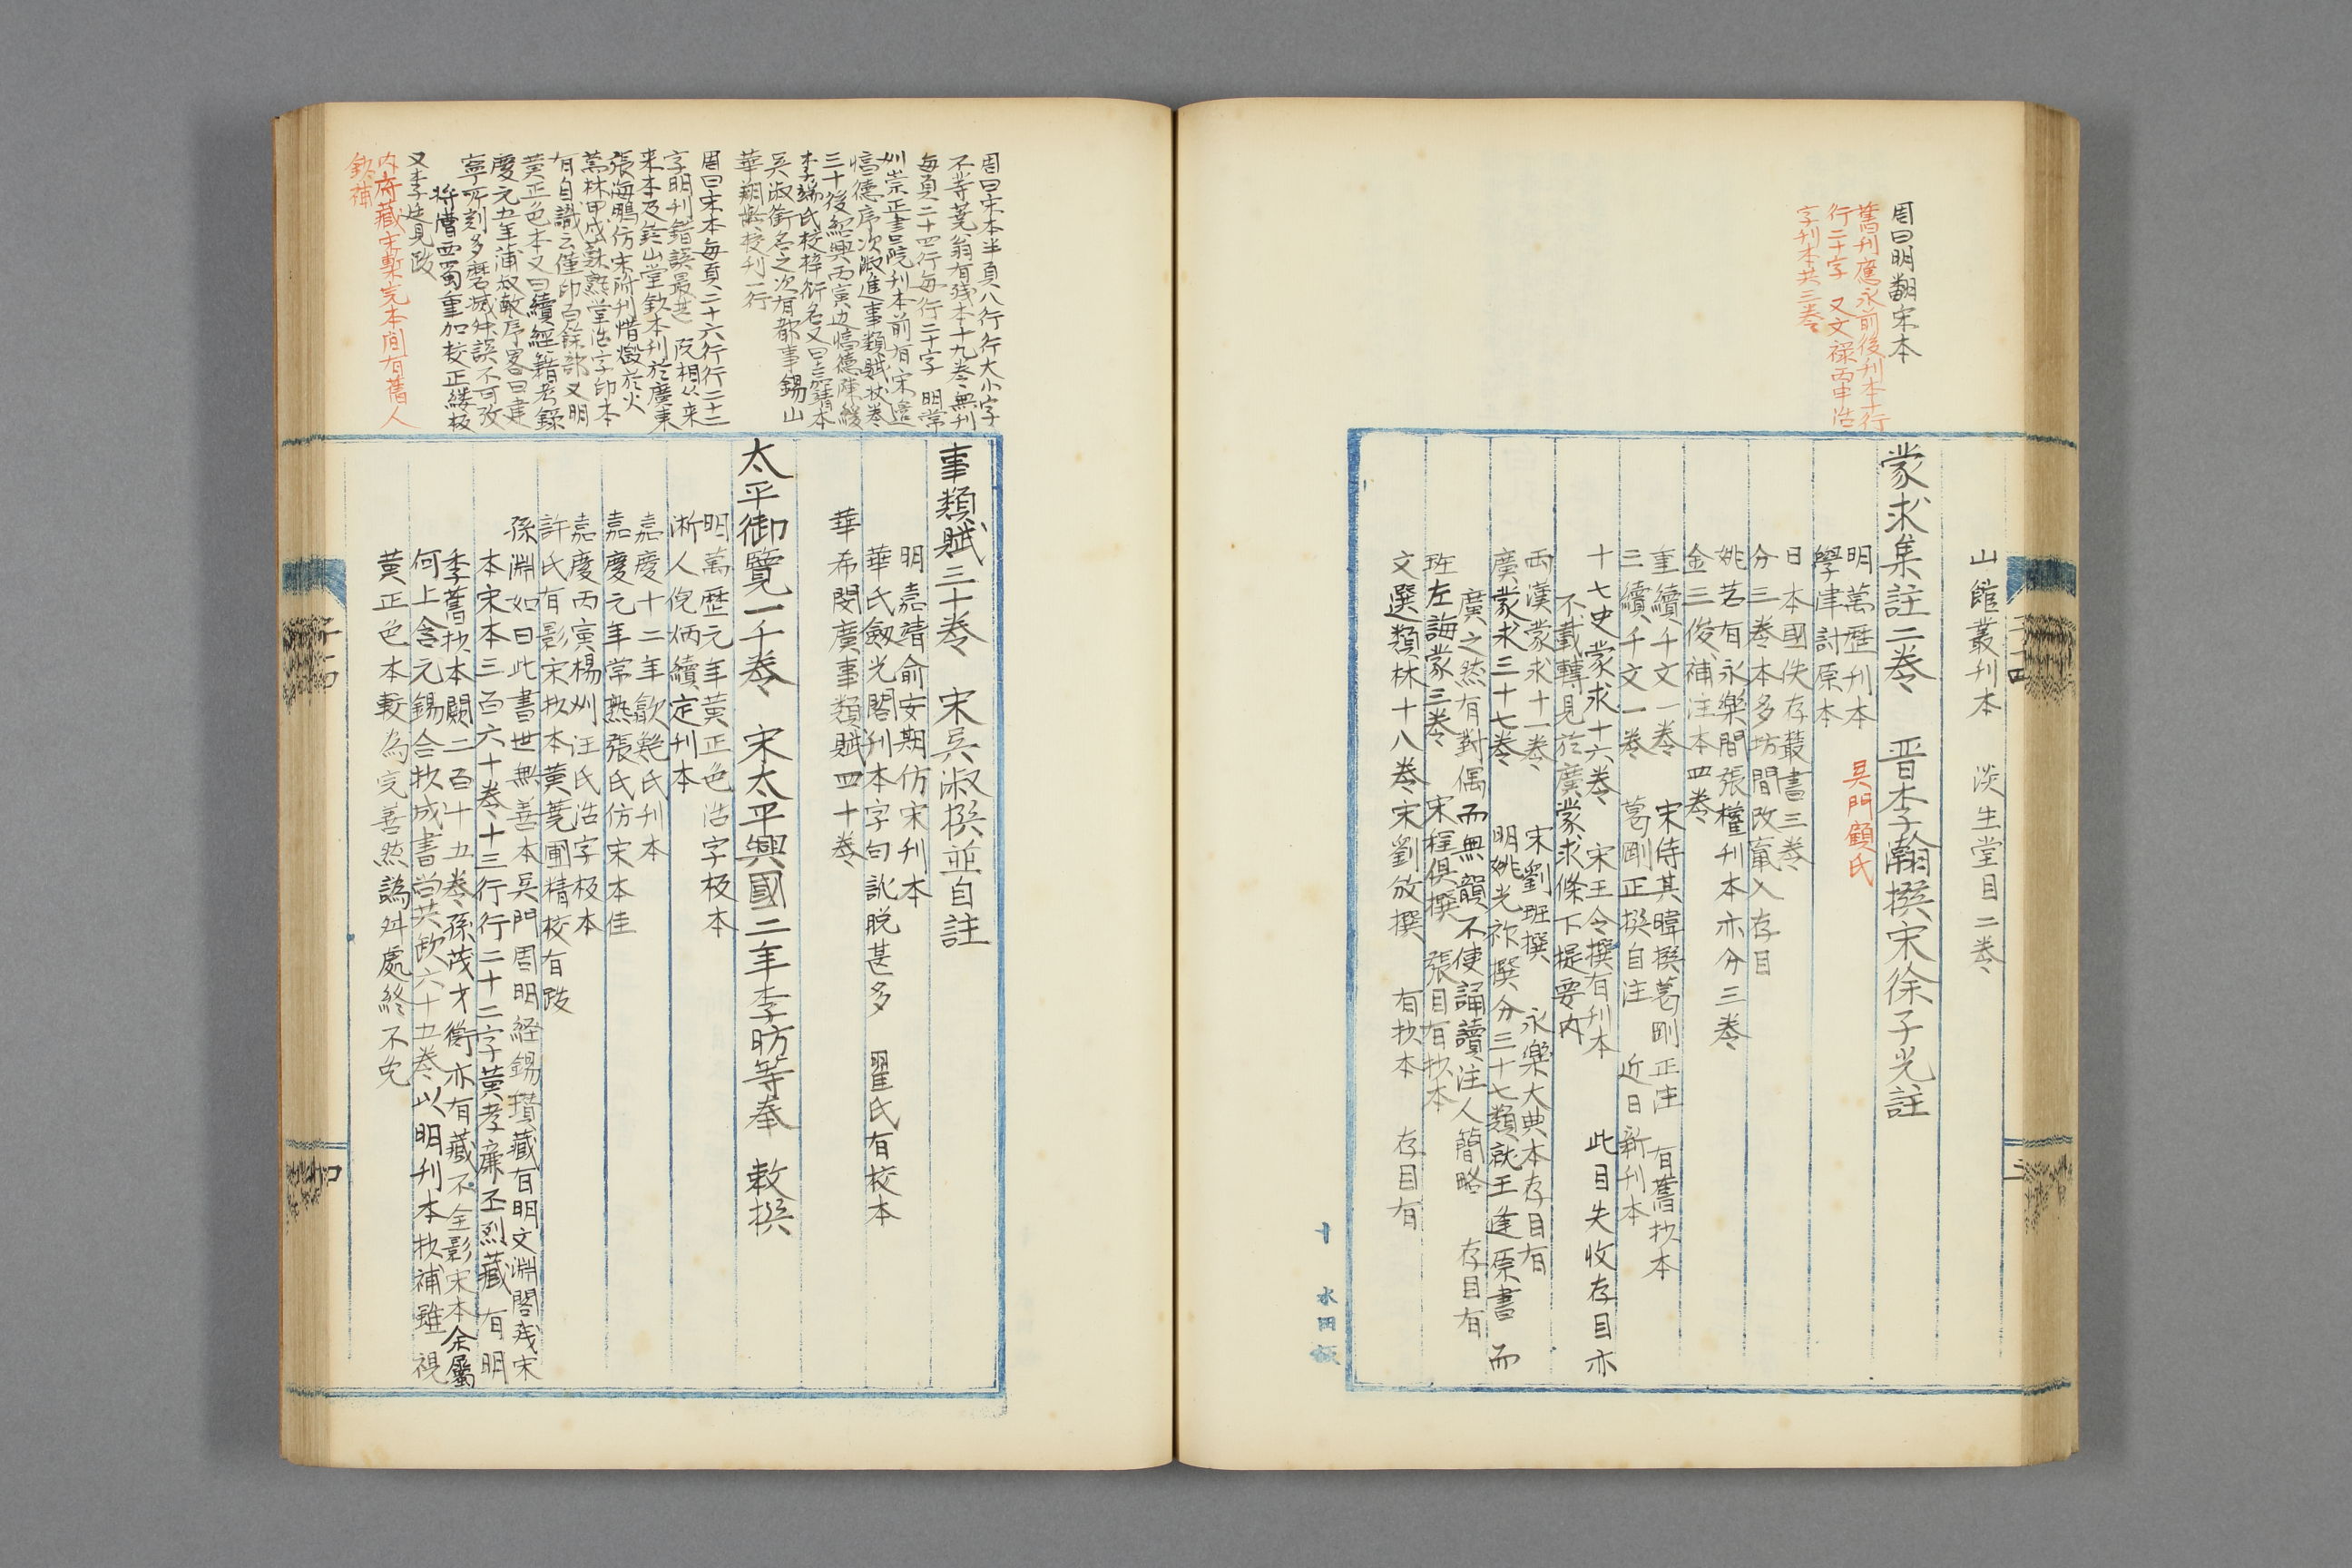 周曰明翻宋本
舊刊應永前後刊本行
行二十字 又文禄丙申活
字刊本共三卷
山館叢刊本 淡生堂目二卷
蒙求集註二卷 晋李瀚撰宋徐子光註
明萬歴刊本 吴門顧氏
學津討原本
日本國佚存叢書三卷
分三卷本多坊間改竄入存目
姚若有永樂間張權刊本亦分三卷
金三俊補注本四卷
重續千文一卷 宋侍其暐撰葛剛正注 有舊抄本
二續千文一卷 葛剛正撰自注 近日新刊本
十七史蒙求十六卷 宋王令撰有刊本 此目失收存目亦
不載轉見於廣蒙求條下提要内
兩漢蒙求十一卷 宋劉班撰 永樂大典本存目有
廣蒙求三十七卷 明姚光祚撰分三十七類就王逢原書而
廣之然有對偶而無韻不使誦讀注人簡略 存目有
班左誨蒙三卷 宋程俱撰 張目有抄本
文選類林十八卷宋劉攽撰 有抄本 存目有
十 水田紙
周曰宋本半頁八行行大小字
不等蕘翁有殘本十九卷無刊
每頁二十四行每行二十字 明常
州崇正書院刊本前有宋邉
惇德序次淑進事類賦狀卷
三十後紹興丙寅邉惇德陳綬
李端氏校梓銜名又曰宗清本
吴淑銜名之次有都事錫山
華翔齡校刊一行
周曰宋本每頁二十六行行二十二
字明刊錯誤最甚 阮相公來
來本及鈔山堂欽本刊於廣東
張海鵬仿宋附刊惜燬於火
嵩林甲戌蘇熟堂活字印本
有自識云僅印百餘部又明
黄正色本又曰續經籍考録
慶元五年蒲叔獻序畧曰建
寧所刻多磨滅舛誤不可攷
將漕西蜀重加校正縷板
又李廷見跋
内府藏宋槧完本間有舊人
欽補
事類賦三十卷 宋吴淑撰並自註
明嘉靖俞安期仿宋刊本
華氏劍光閣刊本字句訛脱甚多 瞿氏有校本
華希閔廣事類賦四十卷
太平御覽一千卷 宋太平興國二年李昉等奉 敕撰
明萬歴元年黄正色活字板本
淅人倪炳續定刊本
嘉慶十二年歙鮑氏刊本
嘉慶元年常熟張氏仿宋本佳
嘉慶丙寅楊州汪氏活字板本
許氏有影宋抄本黄蕘圃精校有跋
孫淵如曰此書世無善本吴門周明經錫瓚藏有明文淵閣殘宋
本宋本三百六十卷十三行行二十二字黄孝廉丕烈藏 有明
季舊抄本闕二百十五卷孫茂才衡亦有藏不全影宋本余屬
何上舍元錫合抄成書尚共欽六十五卷以明刊本抄補雖視
黄正色本較為完善然譌舛處終不免